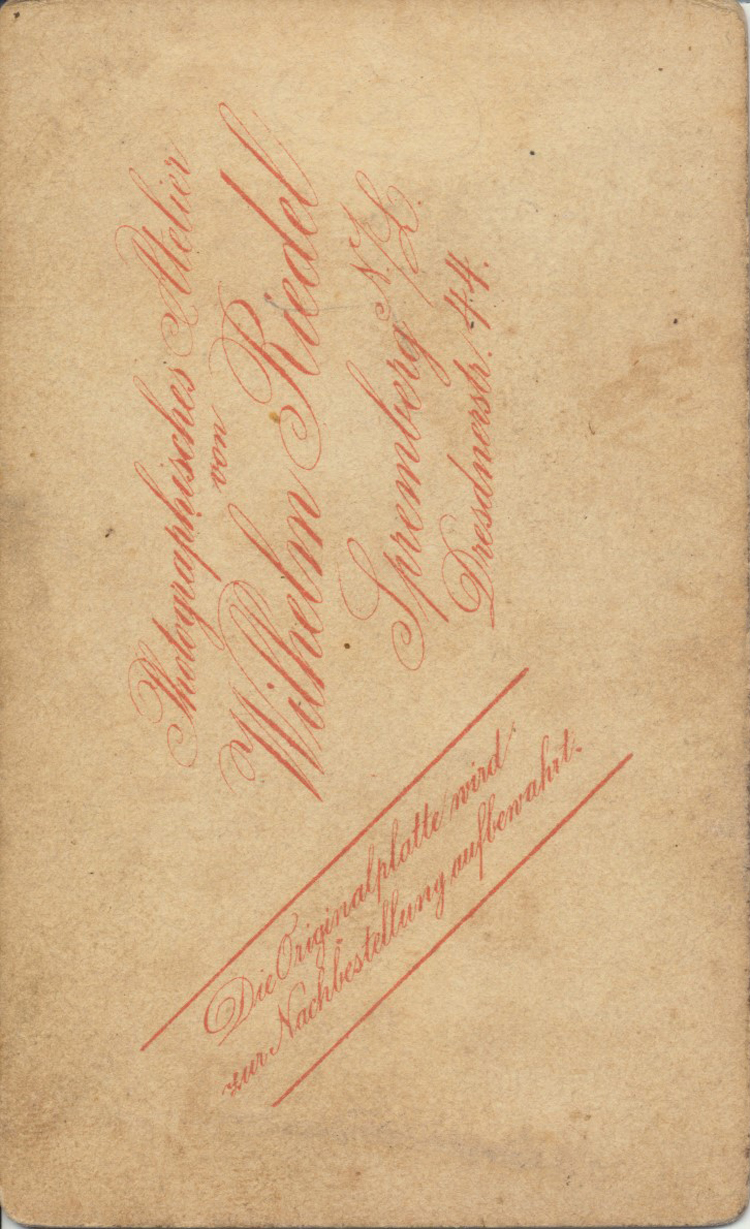 Photographisches Atelier
von
Wilhelm Riedel
Spremberg N/L.
Dresdnerstr. 44.
Die Originalplatte wird
zur Nachbestellung aufbewahrt.